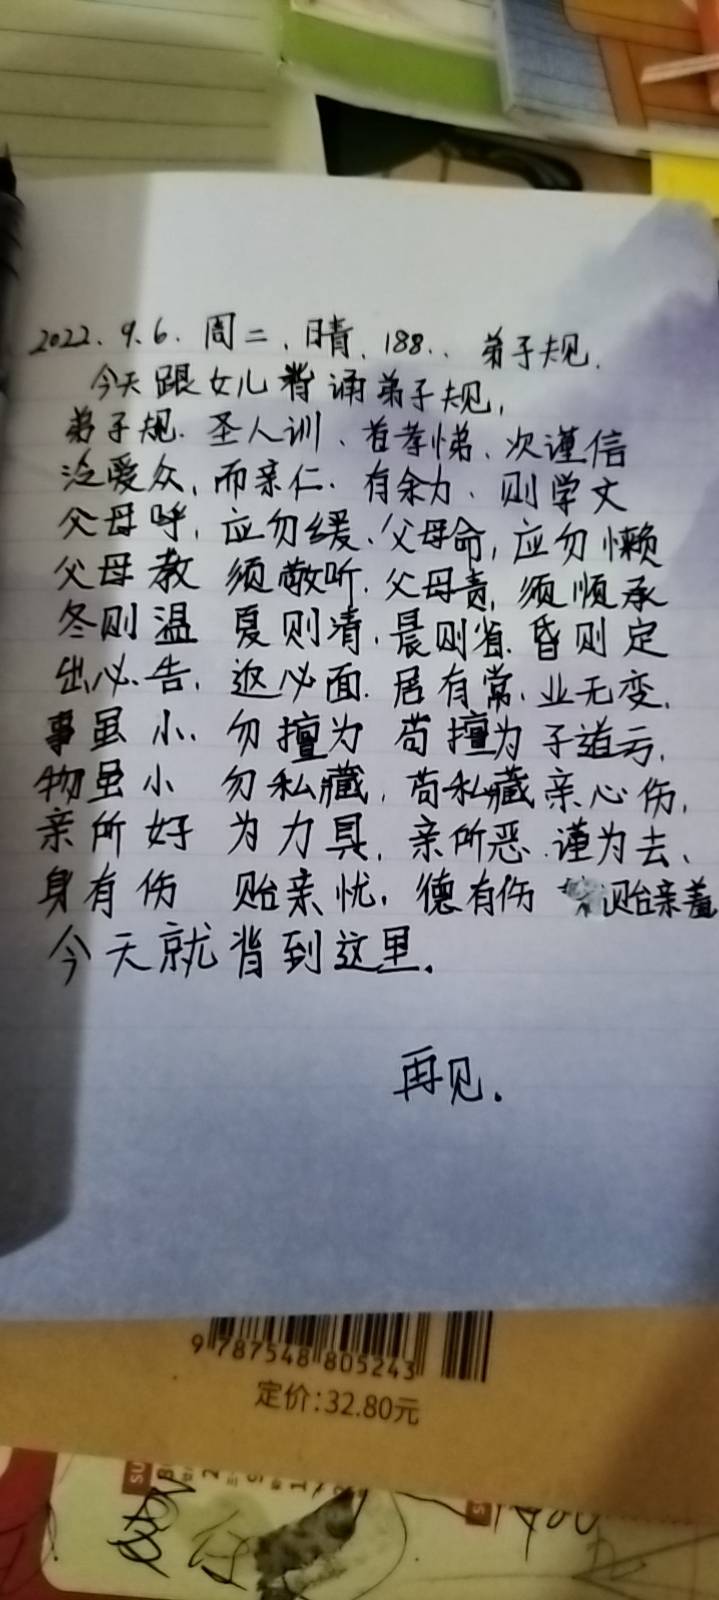 2022.9.6.周二、晴、188.. 弟子规.
今天跟女儿背诵弟子规,
弟子规.圣人训、首孝悌、次谨信
泛爱众,而亲仁.有余力、则学文
父母呼,应勿缓、父母命,应勿懒
父母教 须敬听.父母责,须顺承
冬则温 夏则清,晨则省.昏则定
出必告,返必面.居有常,业无变,
事虽小、勿擅为 苟擅为 子道亏,
物虽小 勿私藏,苟私藏亲心伤,
亲所好 为力具,亲所恶.谨为去、
身有伤 贻亲忧,德有伤 贻亲羞
今天就背到这里.
再见.
9 787548 805243
定价:32.80元